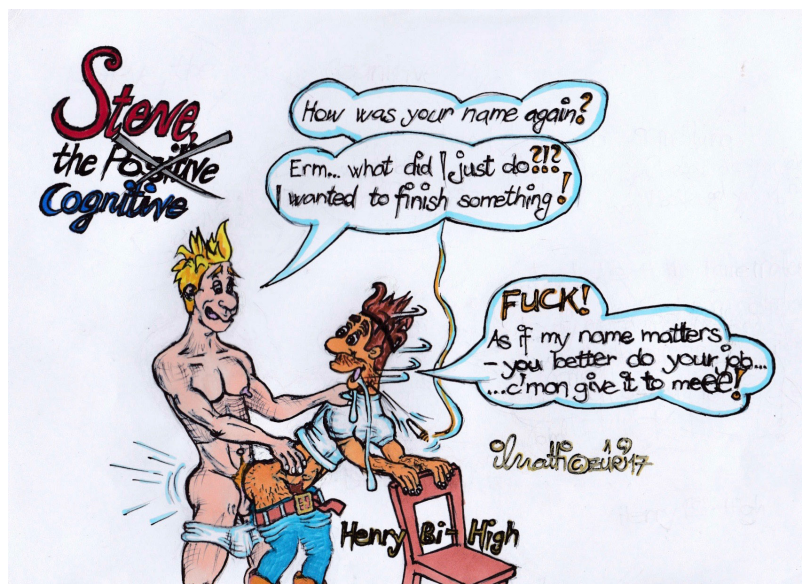 Steve,
the Positive
Cognitive
How was your name again?
Erm... what did I just do?!?
I wanted to finish something!
FUCK!
As if my name matters
- you better do your job...
...c'mon give it to meee!
Henry Bi-High